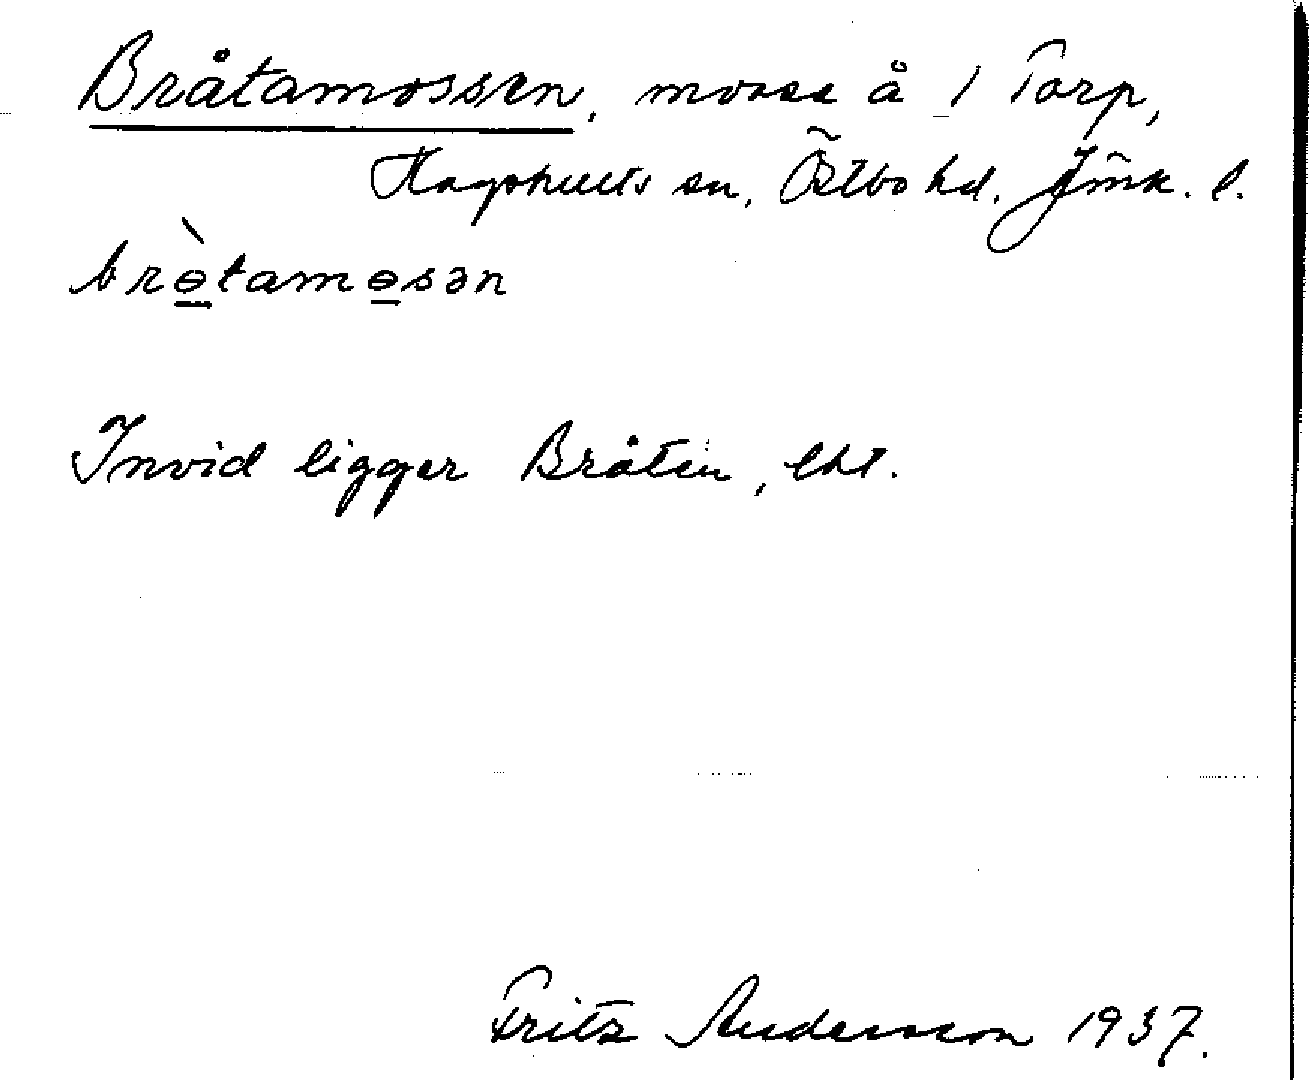 Bråtamossen, mosse å 1 Torp,
Hagshults sn, Östbo hd. Jönk. l.
brɵ̠̀tamɵ̠sən
Invid ligger Bråten, lht.
Fritz Andersson 1937.